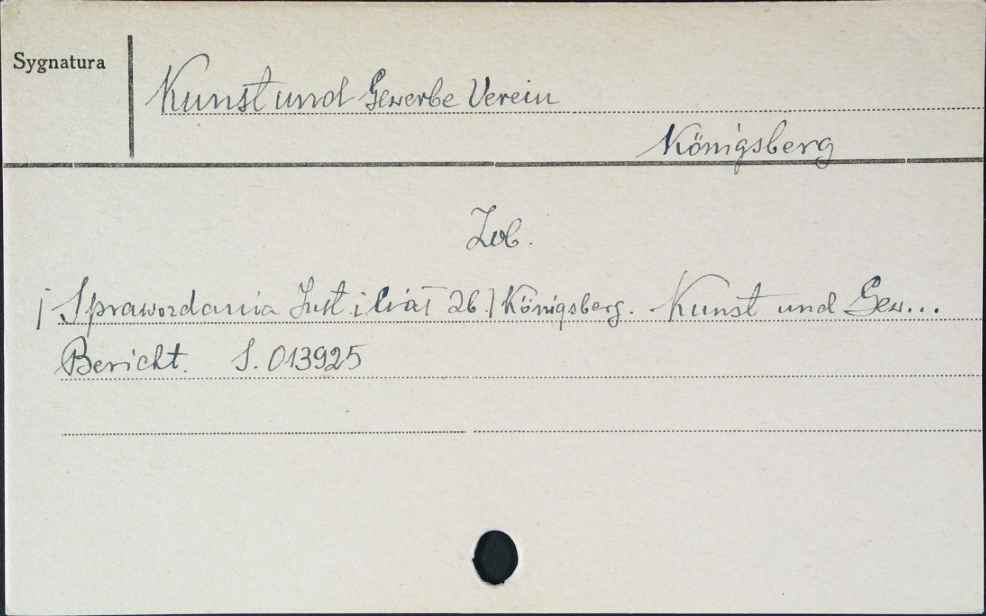 Sygnatura
Kunst und Gewerbe Verein
Königsberg
Zob.
Sprawozdania Inst i 26.] Königsberg. Kunst und Gew...
Bericht. S. 013925